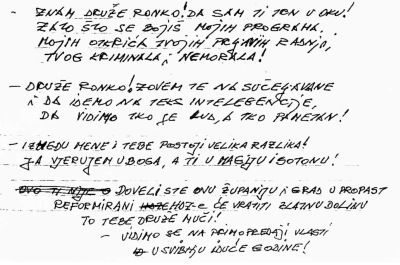 - ZNAM DRUŽE RONKO! DA SAM TI TRN U OKU!
ZATO ŠTO SE BOJIŠ MOJIH PROGRAMA,
MOJIH OTKRIĆA TVOJIH PRLJAVIH RADNJI,
TVOG KRIMINALA, NEMORALA!
- DRUŽE RONKO! ZOVEM TE NA SUČELJAVANJE
I DA IDEMO NA TEKS INTELEGENCIJE,
DA VIDIMO TKO JE LUD, A TKO PAMETAN!
- IZMEĐU MENE I TEBE POSTOJI VELIKA RAZLIKA!
JA VJERUJEM U BOGA, A TI U MAGIJU I SOTONU!
OVO TI NIJE DOVELI STE OVU ŽUPANIJU I GRAD U PROPAST
REFORMIRANI HOZ-E ĆE VRATITI ZLATNU DOLINU
TO TEBE DRUŽE MUČI!
- VIDIMO SE NA PRIMOPREDAJI VLASTI
U SVIBNJU IDUĆE GODINE!